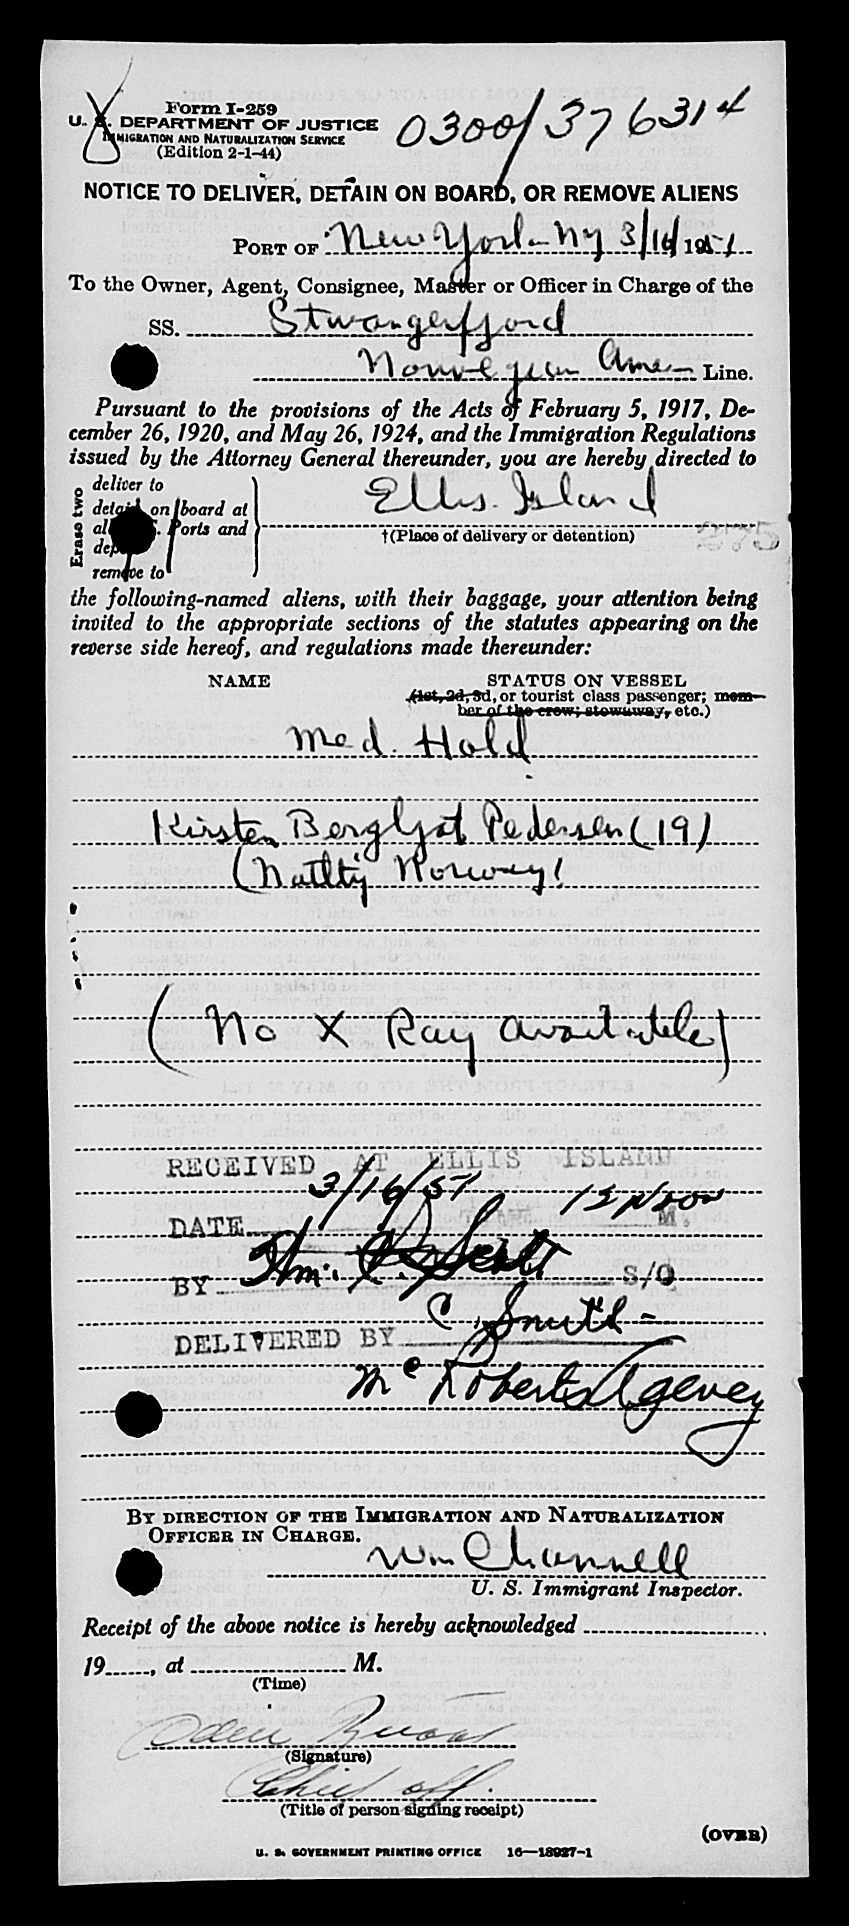 Form I-259
U. S. DEPARTMENT OF JUSTICE
IMMIGRATION AND NATURALIZATION SERVICE
(Edition 2-1-44)
0300/376314
NOTICE TO DELIVER, DETAIN ON BOARD, OR REMOVE ALIENS
PORT OF New York NY 3/16/1951
To the Owner, Agent, Consignee, Master or Officer in Charge of the
SS. Stvangerfjord
Norwegian Amer Line.
Pursuant to the provisions of the Acts of February 5, 1917, De-
cember 26, 1920, and May 26, 1924, and the Immigration Regulations
issued by the Attorney General thereunder, you are hereby directed to
Erase two
deliver to
detain on board at
all U. S. Ports and
remove to
Ellis Island
†(Place of delivery or detention)
275
the following-named aliens, with their baggage, your attention being
invited to the appropriate sections of the statutes appearing on the
reverse side hereof, and regulations made thereunder:
NAME STATUS ON VESSEL
(1st, 2d, 3d, or tourist class passenger; mem-
ber of the crew; stowaway, etc.)
Med. Hold
Kirsten Bergljot Pedersen (19)
(Natlty Norway)
(No X Ray available)
RECEIVED AT ELLIS ISLAND
DATE 3/16/51 12 Noon M.
BY Wm. Scott S/O
DELIVERED BY C. Smith -
Mc Roberts Agency
BY DIRECTION OF THE IMMIGRATION AND NATURALIZATION
OFFICER IN CHARGE.
Wm Channell
U. S. Immigrant Inspector.
Receipt of the above notice is hereby acknowledged
19____, at ____ M.
(Time)
(Signature)
Chief off.
(Title of person signing receipt)
(OVER)
U. S. GOVERNMENT PRINTING OFFICE 16—18927-1